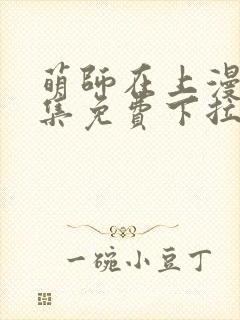 萌师在上漫
集免费下拉
一碗小豆丁